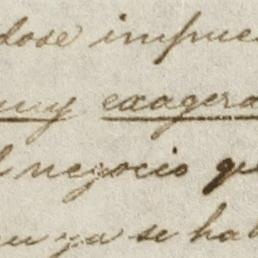 dose impue
muy exagera
l negocio qu
ya se hab